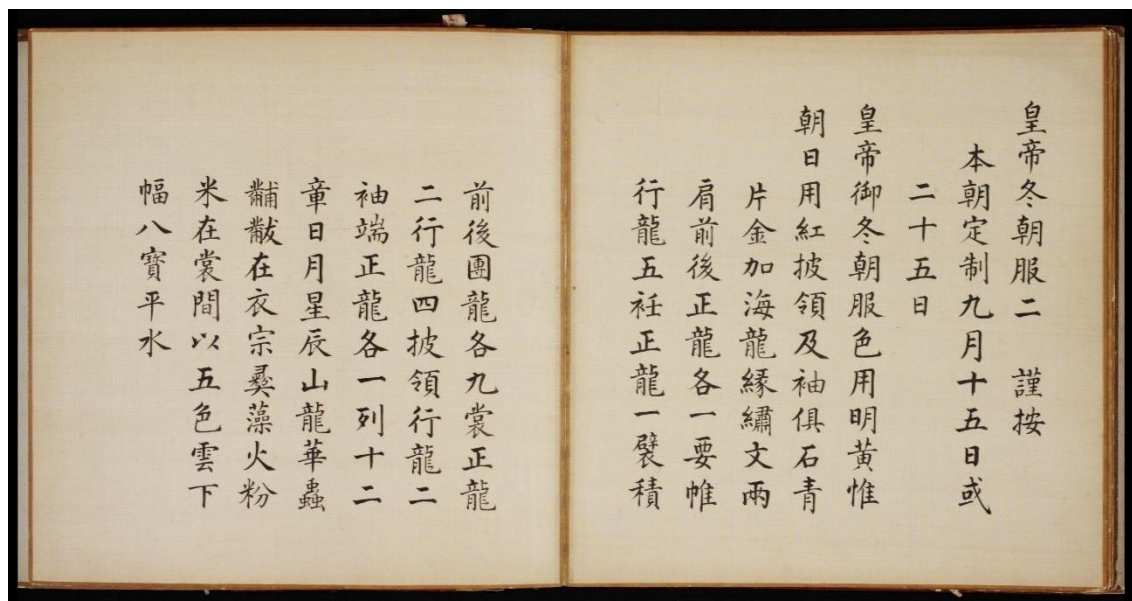 皇帝冬朝服二　謹按
本朝定制九月十五日或
二十五日
皇帝御冬朝服色用明黄惟
朝日用紅披領及袖俱石青
片金加海龍緣繡文兩
肩前後正龍各一要帷
行龍五衽正龍一襞積
前後團龍各九裳正龍
二行龍四披領行龍二
袖端正龍各一列十二
章日月星辰山龍華蟲
黼黻在衣宗彝藻火粉
米在裳間以五色雲下
幅八寶平水